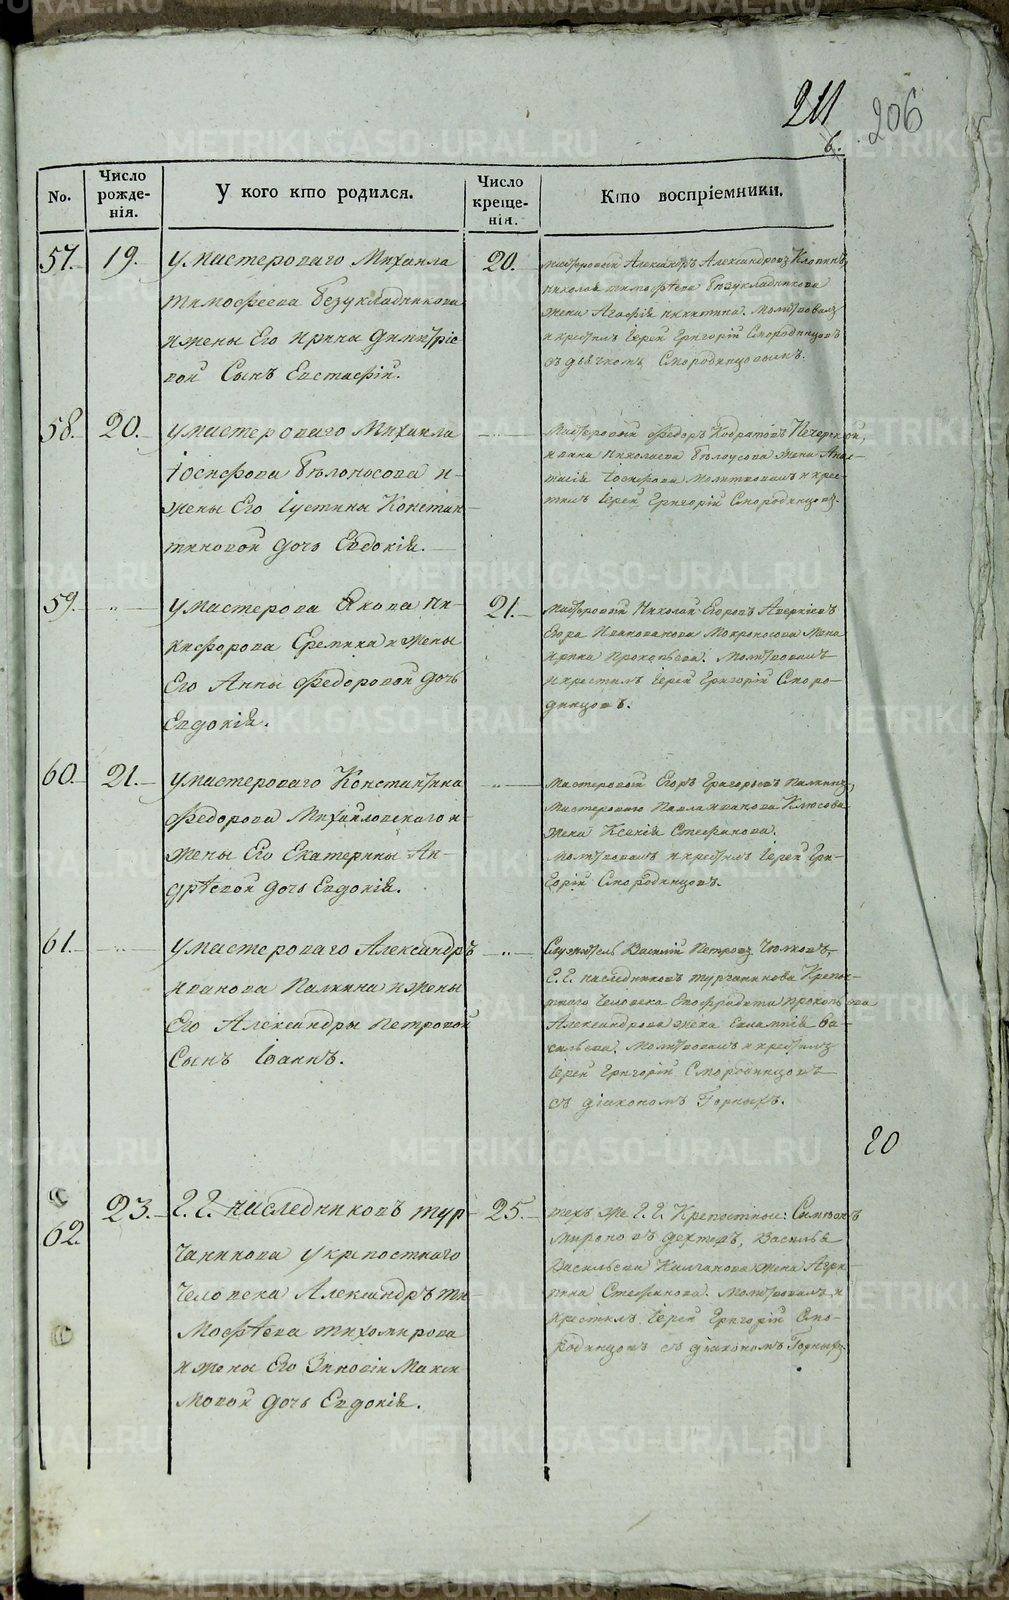 211
206
6.
No.
Число рожде-нія.
У кого кто родился.
Число креще-нія.
Кто воспріемники.
57. 19. У мастероваго Михаила
Тимофеева Безукладникова
и жены Его Ирины Димитріе
вой Сынъ Евстафій.
20. Мастеровый Александръ Александровъ Клопинъ,
Николая Тимофѣева Безукладникова
жена Агафія Никитина. Молитвовалъ
и крестилъ Іерей Григорій Смородинцовъ
съ дьячкомъ Смородинцовымъ.
58. 20. У мастероваго Михаила
Іосифова Бѣлоносова и
жены Его Іустины Констан
тиновой дочь Евдокія.
Мастеровый Федоръ Кодратовъ Печерской,
Ивана Николаева Бѣлоусова жена Анас-
тасія Іосифова Молитвовалъ и крес-
тилъ Іерей Григорій Смородинцовъ.
59. " У мастерова Якова Ни-
кифорова Еремина и жены
Его Анны Федоровой дочь
Евдокія.
21. Мастеровый Николай Егоровъ Аверкіевъ
Егора Иванованова Мокроносова Жена
Ирина Прокопьева. Молитвовалъ
и крестилъ Іерей Григорій Сморо-
динцовъ.
60. 21. У мастероваго Константина
Федорова Михайловскаго и
жены Его Екатерины Ан-
дрѣевой дочь Евдокія.
" Мастеровой Егоръ Григорьевъ Палкинъ,
Мастероваго Павла Иванова Клюсова
жена Ксенія Стефанова.
Молитвовалъ и крестилъ Іерей Гри-
горій Смородинцовъ.
61. " У мастероваго Александръ
Иванова Палкина и жены
Его Александры Петровой
Сынъ Іоаннъ.
" Служитель Василій Петровъ Чюлковъ,
Г. Г. наследниковъ Турчанинова Крепос-
тнаго человека Епафродита Прокопьева
Александрова жена Евлампія Ва-
сильева. Молитвовалъ и крестилъ
Іерей Григорій Смородинцовъ
съ діакономъ Горныхъ.
20
62. 23. Г. Г. наследниковъ Тур-
чанинова у крепостнаго
человека Александръ Ти-
мофѣева Тихомирова
и жены Его Зиновіи Макси
мовой дочь Евдокія.
25. техъ же Г. Г. Крепостные: Симеонъ
Мироновъ Дехтевъ, Василья
Васильева Калганова жена Агри-
пина Стефанова. Молитвовалъ и
Крестилъ Іерей Григорій Смо-
родинцовъ съ діакономъ Горныхъ
METRIKI.GASO-URAL.RU